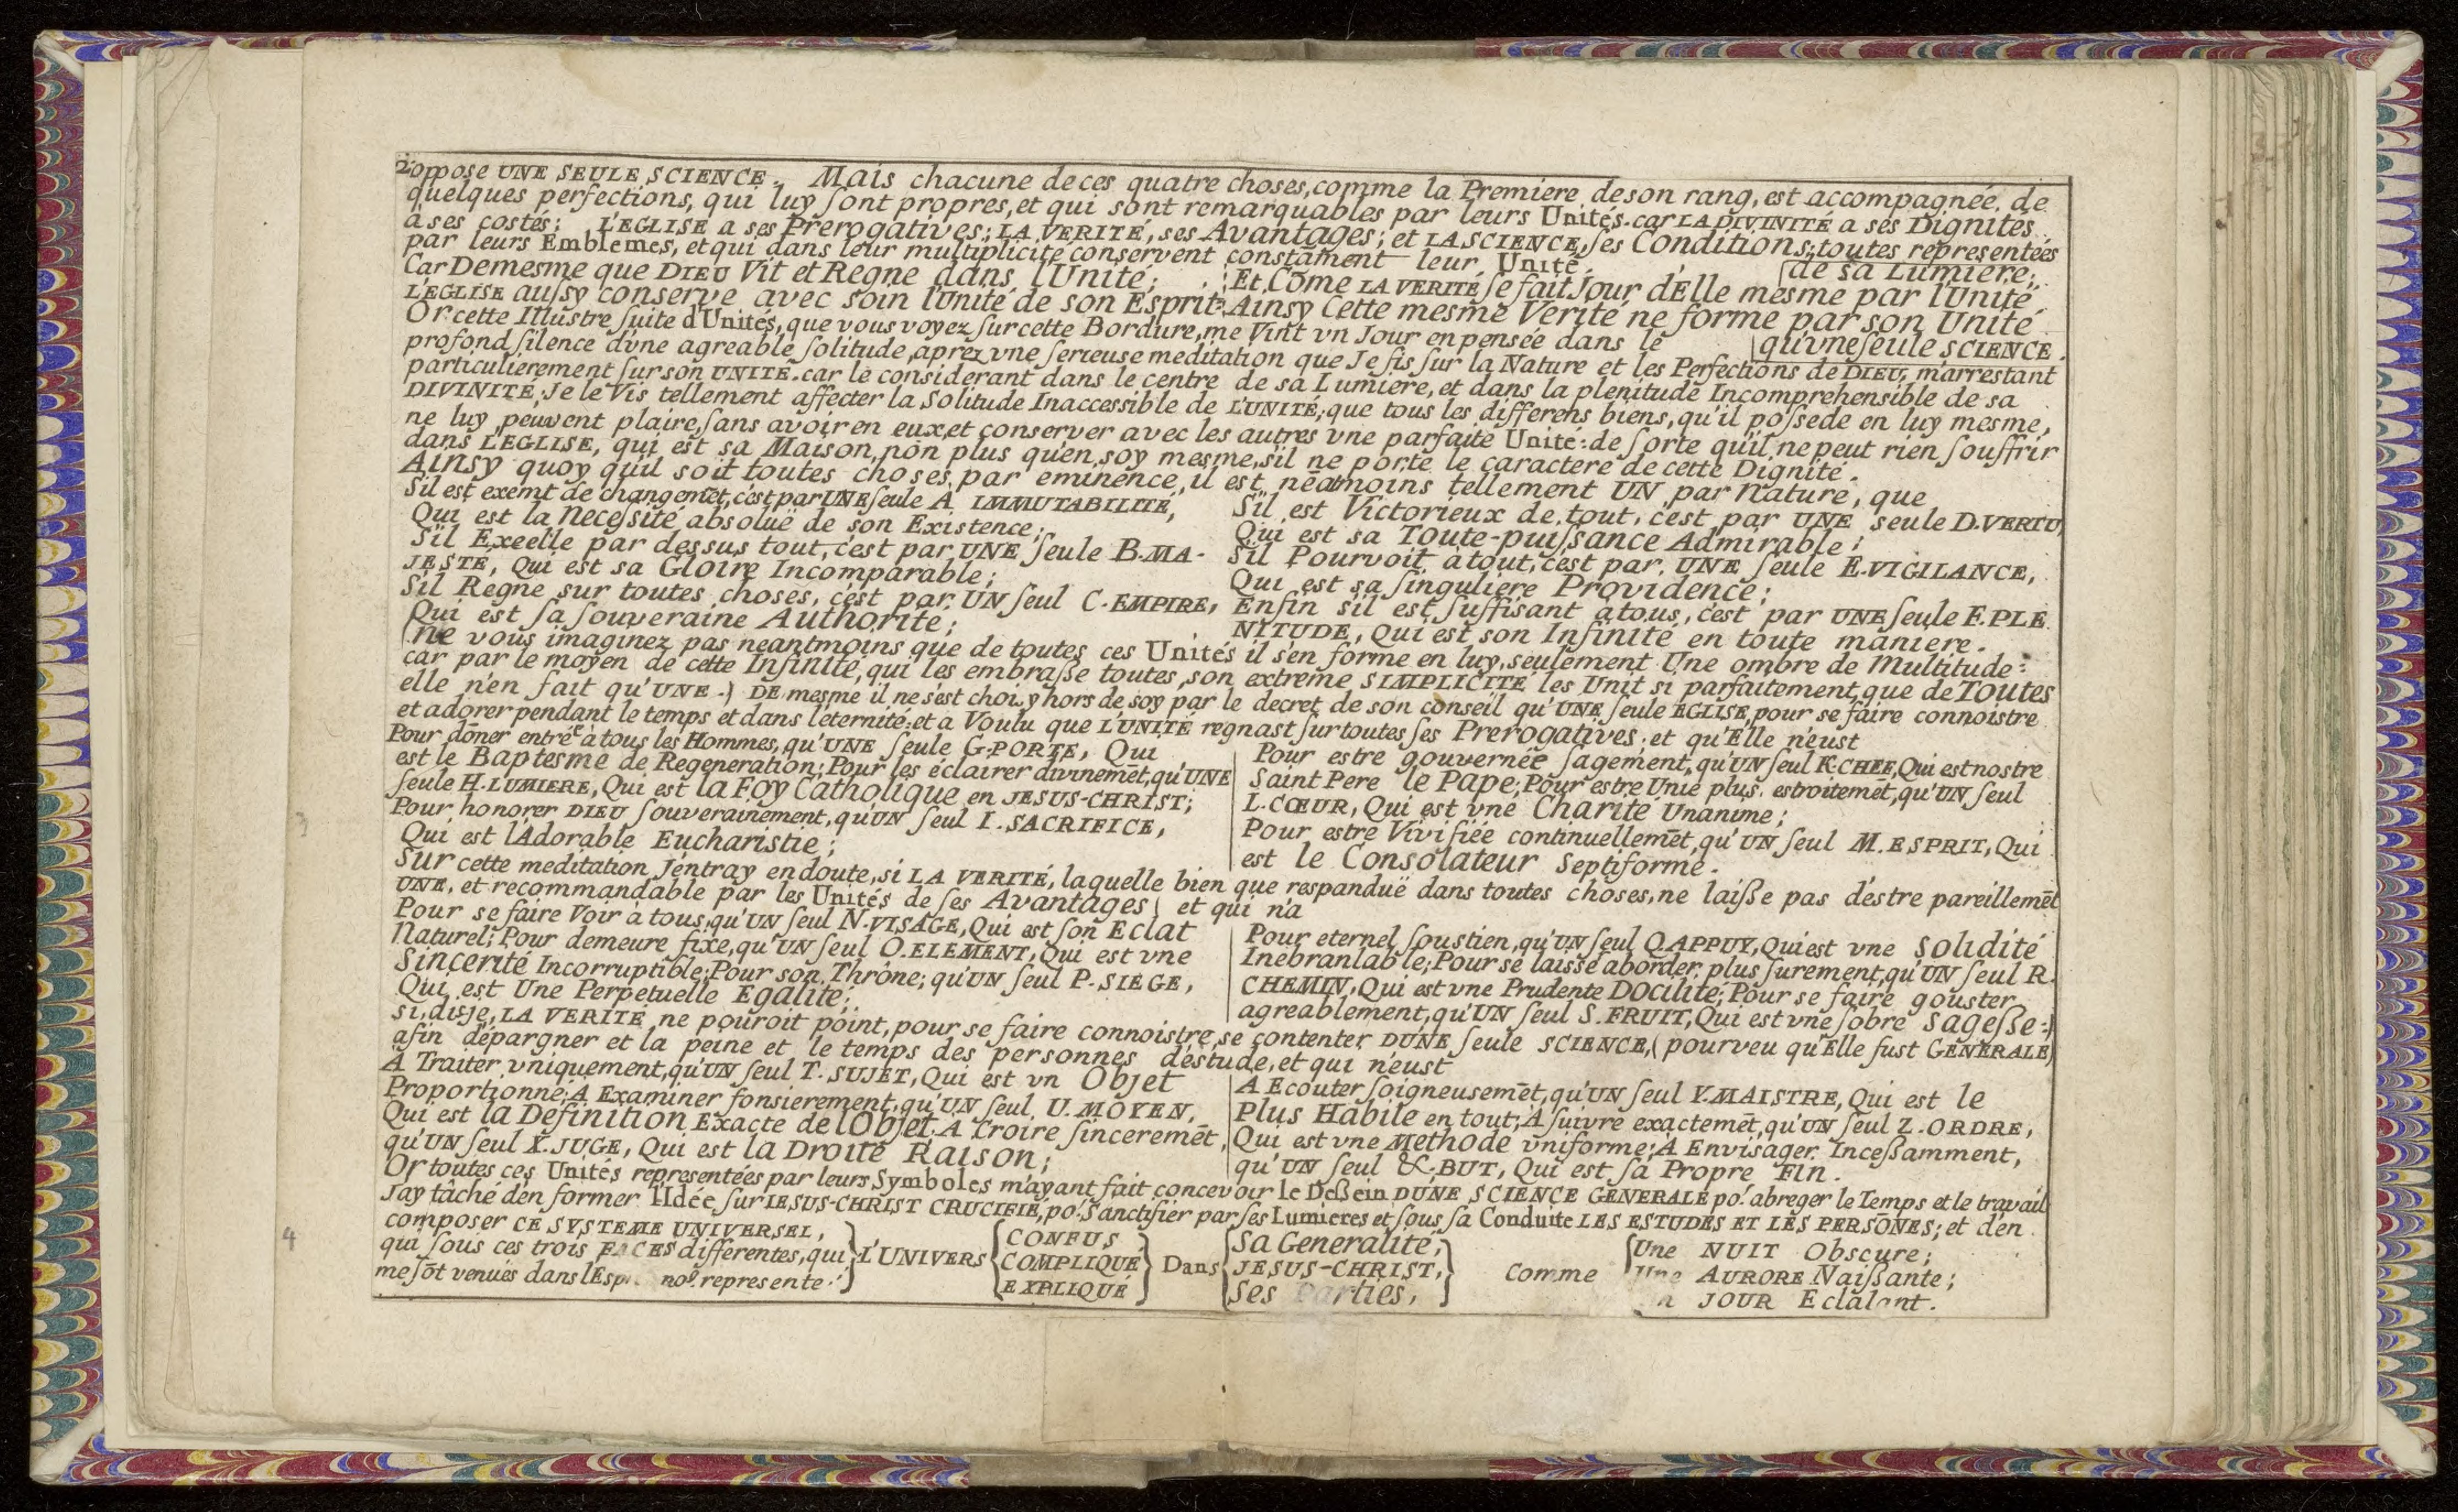 2. oppose UNE SEULE SCIENCE. Mais chacune de ces quatre choses, comme la Premiere de son rang, est accompagnée, de
quelques perfections, qui luy sont propres, et qui sont remarquables par leurs Unités. car LA DIVINITÉ a ses Dignités
a ses costés; L'EGLISE a ses Prerogatives; LA VERITÉ, ses Avantages; et LA SCIENCE, ses Conditions; toutes representées
par leurs Emblemes, et qui dans leur multiplicité conservent constament leur Unité.
Car Demesme que DIEU Vit et Regne dans l'Unité; Et Cōme LA VERITÉ se fait Jour d'Elle mesme par l'Unité
de sa Lumiere;
L'EGLISE aussy conserve avec soin l'Unité de son Esprit: Ainsy Cette mesme Verité ne forme par son Unité
qu'vne seule SCIENCE.
Or cette Illustre suite d'Unités, que vous voyez sur cette Bordure, me Vint vn Jour en pensée dans le
profond silence d'vne agreable solitude, aprez vne serieuse meditation que Je fis sur la Nature et les Perfections de DIEU, m'arrestant
particulierement sur son UNITÉ. car le considerant dans le centre de sa Lumiere, et dans la plenitude Incomprehensible de sa
DIVINITÉ; Je le Vis tellement affecter la Solitude Inaccessible de L'UNITÉ; que tous les differens biens, qu'il possede en luy mesme,
ne luy peuvent plaire, sans avoir en eux, et conserver avec les autres vne parfaite Unité: de sorte qu'il ne peut rien souffrir
dans L'EGLISE, qui est sa Maison, non plus qu'en soy mesme, s'il ne porte le caractere de cette Dignité.
Ainsy quoy qu'il soit toutes choses, par eminence, il est neātmoins tellement UN par nature, que
S'il est exemt de changemēt, c'est par UNE seule A. IMMUTABILITÉ,
Qui est la Necessité absoluë de son Existence;
S'il Exeelle par dessus tout, c'est par UNE seule B. MA-
JESTÉ, Qui est sa Gloire Incomparable;
S'il Regne sur toutes choses, c'est par UN seul C. EMPIRE,
Qui est sa souveraine Authorité;
S'il est Victorieux de tout, c'est par UNE seule D. VERTU,
Qui est sa Toute-puissance Admirable;
S'il Pourvoit a tout, c'est par UNE seule E. VIGILANCE,
Qui est sa singuliere Providence;
Enfin s'il est suffisant a tous, c'est par UNE seule F. PLE
NITUDE, Qui est son Infinité en toute maniere.
(ne vous imaginez pas neantmoins que de toutes ces Unités il s'en forme en luy, seulement Une ombre de Multitude:
car par le moyen de cette Infinité, qui les embrasse toutes, son extreme SIMPLICITÉ les Unit si parfaitement, que de Toutes
elle n'en fait qu'UNE.) DE mesme il ne s'est choisy hors de soy par le decret de son conseil qu'UNE seule EGLISE, pour se faire connoistre
et adorer pendant le temps et dans l'eternité: et a Voulu que L'UNITÉ regnast sur toutes ses Prerogatives; et qu'Elle n'eust
Pour dōner entrée a tous les Hommes, qu'UNE seule G. PORTE, Qui
est le Baptesme de Regeneration; Pour les éclairer divinemēt, qu'UNE
seule H. LUMIERE, Qui est la Foy Catholique en JESUS-CHRIST;
Pour honorer DIEU souverainement, qu'UN seul I. SACRIFICE,
Qui est l'Adorable Eucharistie;
Pour estre gouvernée sagement, qu'UN seul K. CHEF, Qui est nostre
Saint Pere le Pape; Pour estre Unie plus estroitemēt, qu'UN seul
L. CŒUR, Qui est vne Charité Unanime;
Pour estre Vivifiée continuellemēt, qu'UN seul M. ESPRIT, Qui
est le Consolateur Septiforme.
Sur cette meditation J'entray en doute, si LA VERITÉ, laquelle bien que respanduë dans toutes choses, ne laisse pas d'estre pareillemēt
UNE, et recommandable par les Unités de ses Avantages ( et qui n'a
Pour se faire Voir a tous, qu'UN seul N. VISAGE, Qui est son Eclat
Naturel; Pour demeure fixe, qu'UN seul O. ELEMENT, Qui est vne
Sincerité Incorruptible; Pour son Thrône; qu'UN seul P. SIEGE,
Qui est Une Perpetuelle Egalité;
Pour eternel soustien, qu'UN seul Q. APPUY, Qui est vne Solidité
Inebranlable; Pour se laisse aborder plus surement, qu'UN seul R.
CHEMIN, Qui est vne Prudente Docilité; Pour se faire gouster
agreablement, qu'UN seul S. FRUIT, Qui est vne sobre Sagesse:)
si, dis-je, LA VERITÉ ne pouroit point, pour se faire connoistre, se contenter D'UNE seule SCIENCE, (pourveu qu'Elle fust GENERALE)
afin d'épargner et la peine et le temps des personnes d'éstude, et qui n'eust
A Traiter vniquement, qu'UN seul T. SUJET, Qui est vn Objet
Proportionné; A Examiner fonsierement, qu'UN seul U. MOYEN,
Qui est la Definition Exacte de l'Objet; A Croire sinceremēt,
qu'UN seul X. JUGE, Qui est la Droite Raison;
A Ecouter soigneusemēt, qu'UN seul Y. MAISTRE, Qui est le
Plus Habile en tout; A suivre exactemēt, qu'UN seul Z. ORDRE,
Qui est vne Methode vniforme; A Envisager Incessamment,
qu'UN seul &. BUT, Qui est sa Propre Fin.
Or toutes ces Unités representées par leurs Symboles m'ayant fait concevoir le Dessein D'UNE SCIENCE GENERALE po.r abreger le Temps et le travail
J'ay tâché d'en former l'Idée sur IESUS-CHRIST CRUCIFIÉ, po.r Sanctifier par ses Lumieres et sous sa Conduite LES ESTUDES ET LES PERSŌNES; et d'en
composer CE SYSTEME UNIVERSEL,
qui sous ces trois FACES differentes, qui
me sōt venues dans l'Esp no.s represente:
L'UNIVERS
CONFUS
COMPLIQUÉ
EXPLIQUÉ
Dans
Sa Generalité;
JESUS-CHRIST,
Ses Parties,
Comme
Une NUIT Obscure;
Une AURORE Naissante;
JOUR Eclatant.
4